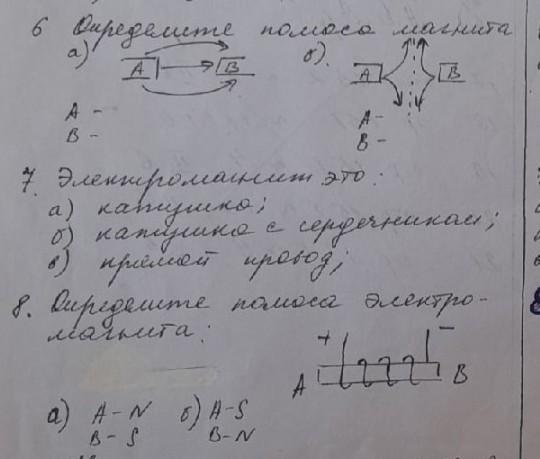 6 Определите полюса магнита
а) A B б). A B
A - A -
B - B -
7. Электромагнит это:
а) катушка;
б) катушка с сердечником;
в) прямой провод;
8. Определите полюса электро-
магнита:
+ -
A B
а) A - N б) A - S
B - S B - N